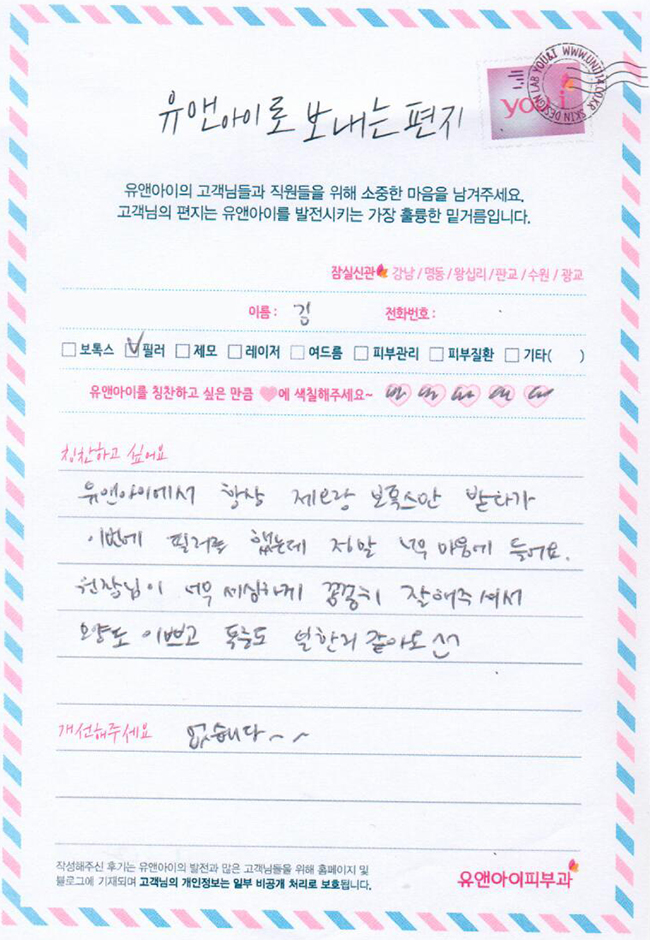 유앤아이로 보내는 편지
you&i
SKIN DESIGN LAB YOU&I WWW.UNI114.CO.KR
유앤아이의 고객님들과 직원들을 위해 소중한 마음을 남겨주세요.
고객님의 편지는 유앤아이를 발전시키는 가장 훌륭한 밑거름입니다.
잠실신관 강남 / 명동 / 왕십리 / 판교 / 수원 / 광교
이름 : 김 전화번호 :
□ 보톡스 ☑ 필러 □ 제모 □ 레이저 □ 여드름 □ 피부관리 □ 피부질환 □ 기타( )
유앤아이를 칭찬하고 싶은 만큼 ♥에 색칠해주세요~
칭찬하고 싶어요
유앤아이에서 항상 제모랑 보톡스만 받다가
이번에 필러를 했는데 정말 너무 마음에 들어요.
원장님이 너무 세심하게 꼼꼼히 잘해주셔서
모양도 이쁘고 통증도 덜한거 같아요
개선해주세요 없습니다~~
작성해주신 후기는 유앤아이의 발전과 많은 고객님들을 위해 홈페이지 및
블로그에 기재되며 고객님의 개인정보는 일부 비공개 처리로 보호됩니다.
유앤아이피부과